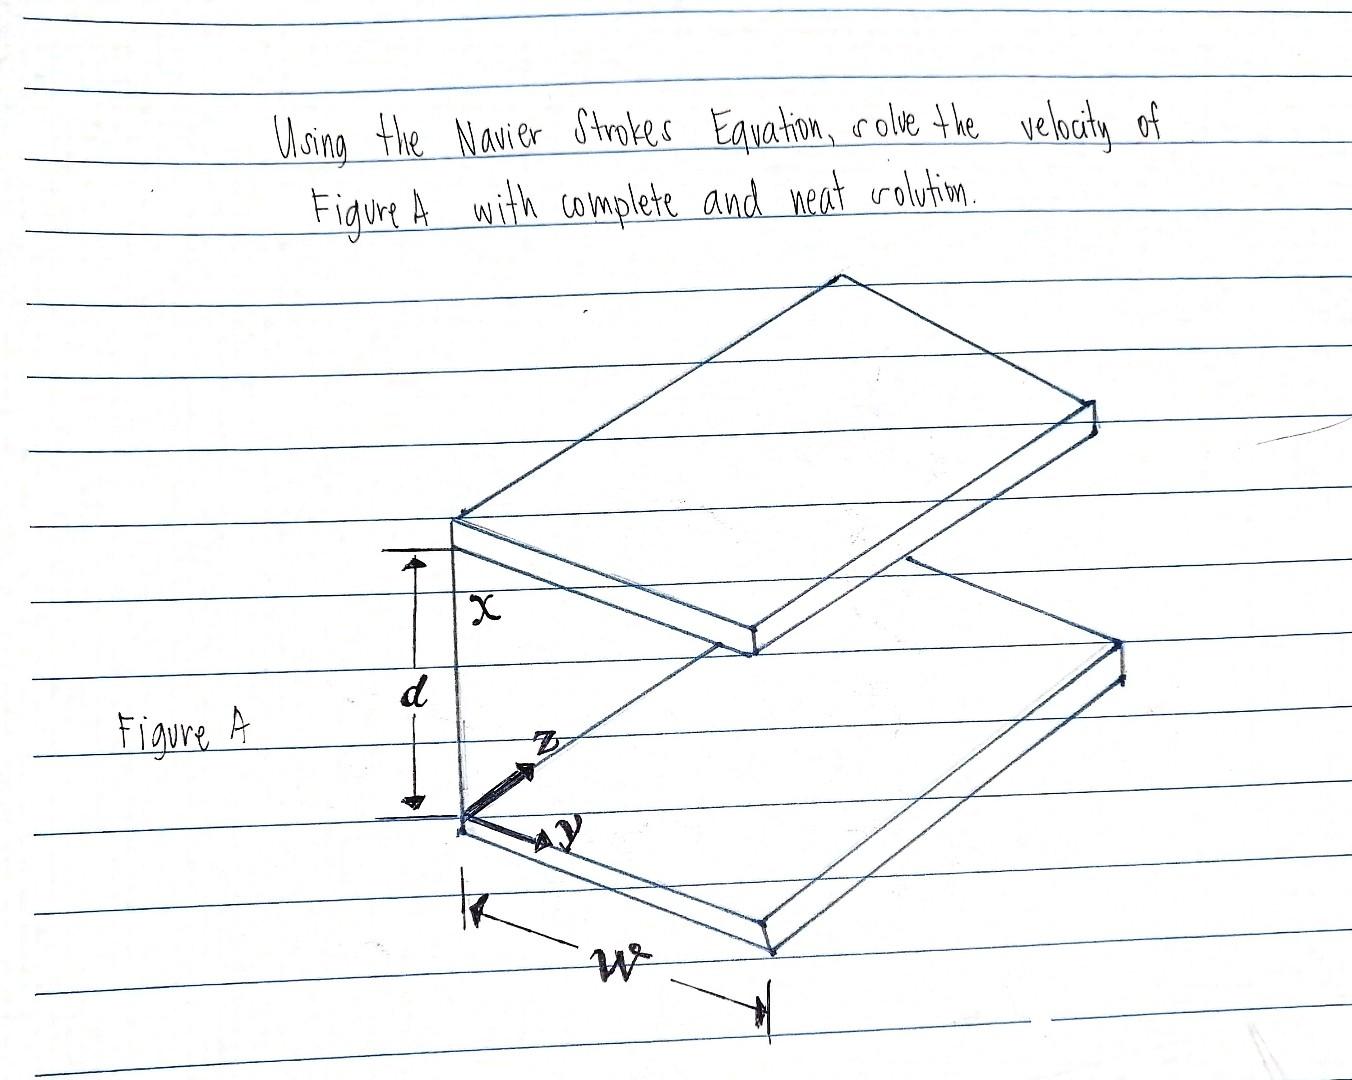 Using the Navier Strokes Equation, solve the velocity of
Figure A with complete and neat solution.
x
d
Figure A
z
y
w